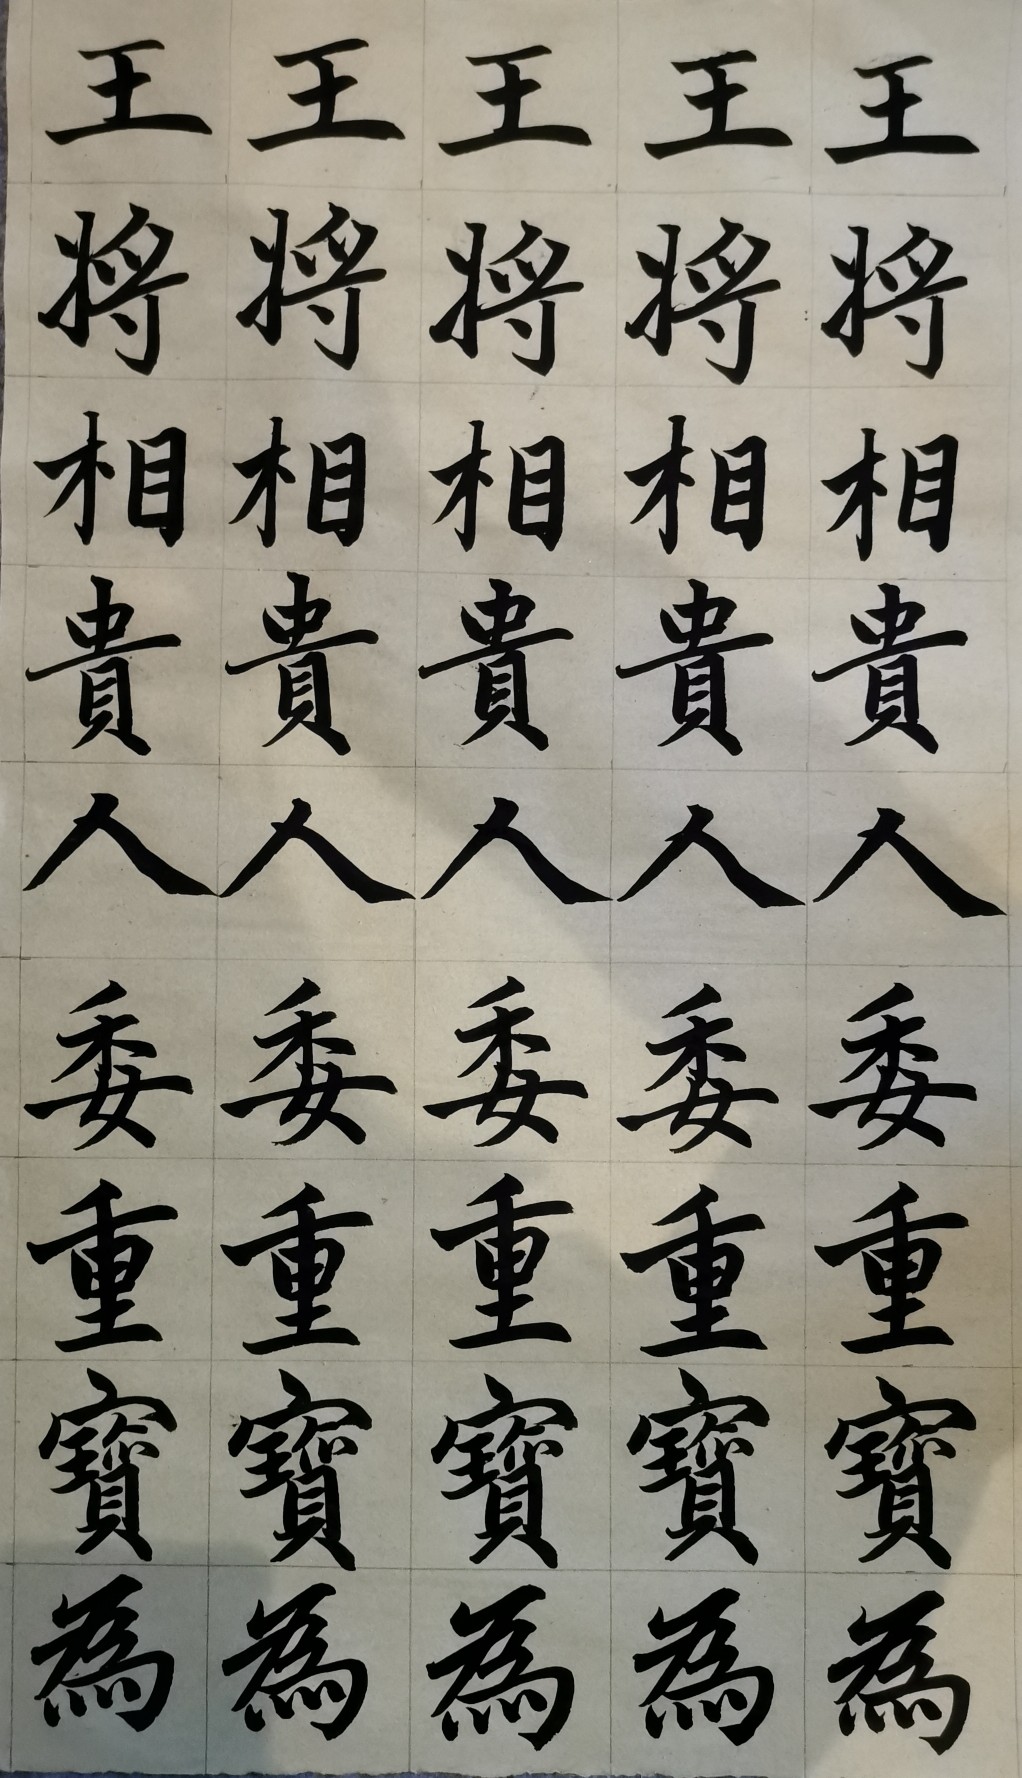 王王王王王
将将将将将
相相相相相
貴貴貴貴貴
人人人人人
委委委委委
重重重重重
寶寶寶寶寶
為為為為為